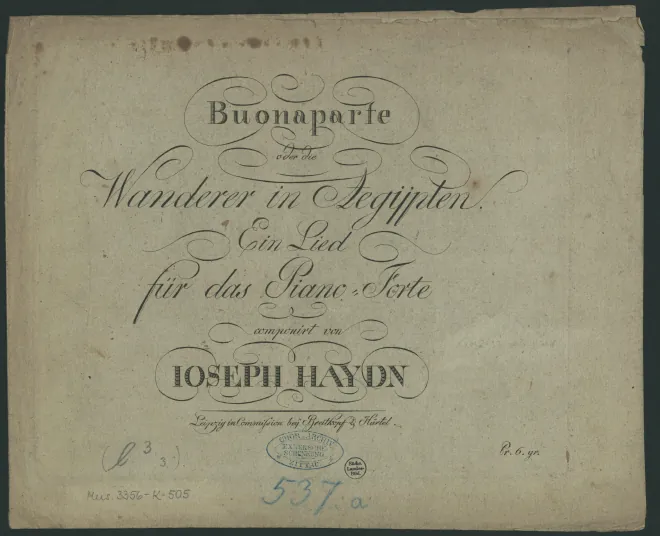 Buonaparte
oder die
Wanderer in Aegÿpten.
Ein Lied
für das Piano-Forte
componirt von
IOSEPH HAYDN
Leipzig in Commission beÿ Breitkopf & Härtel
Pr. 6. gr.
(l 3 3.)
Mus. 3356-K-505
537. a